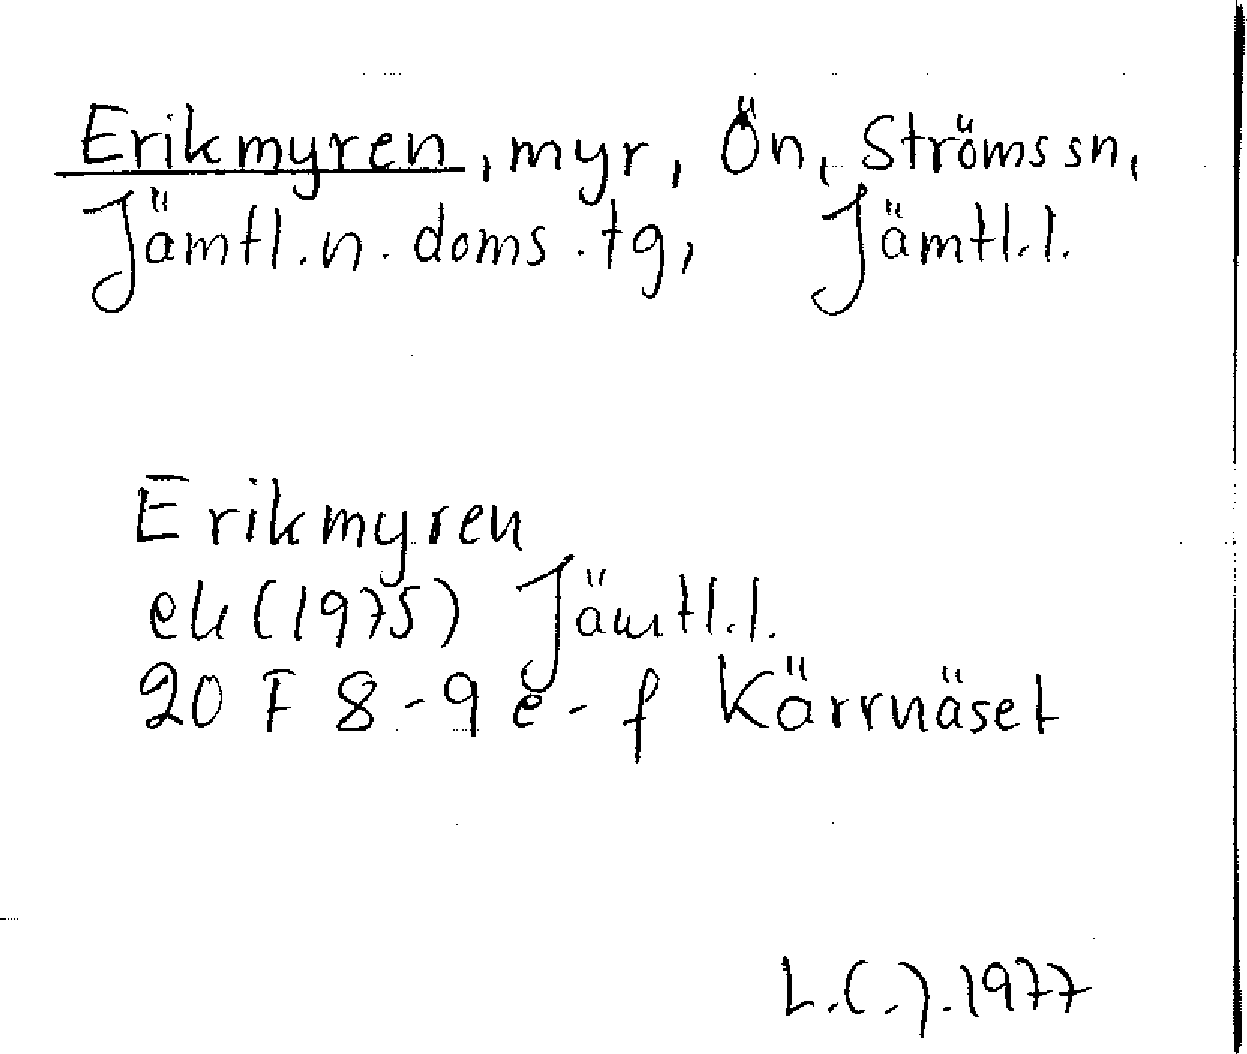 Erikmyren, myr, Ön, Ströms sn,
Jämtl. n. doms. tg, Jämtl. l.
Erikmyren
ek (1975) Jämtl. l.
20 F 8-9 e-f Kärrnäset
1977